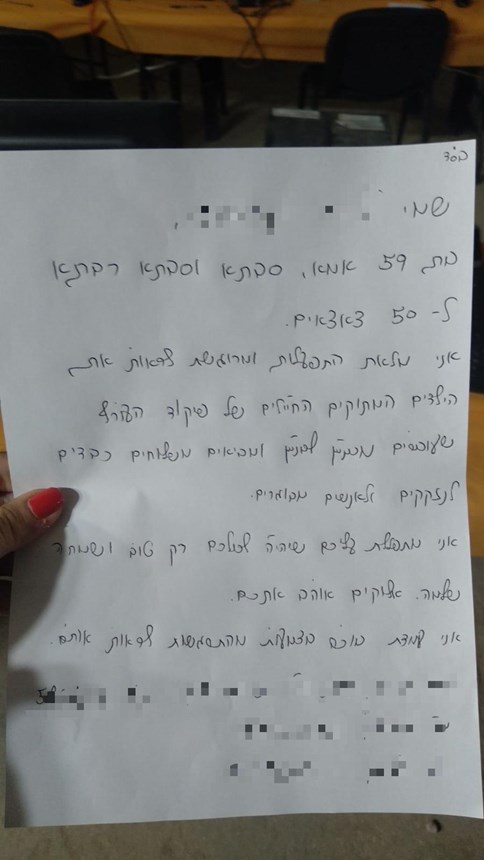 בס"ד
שמי
בת 59 אמא, סבתא וסבתא רבתא
ל- 50 צאצאים.
אני מלאת התפעלות ומרוגשת לראות את
הילדים המתוקים החיילים של פיקוד העורף
שעוברים מבנין לבנין ומביאים משלוחים כבדים
לנזקקים ולאנשים מבוגרים.
אני מתפללת עליכם שיהיה לכולכם רק טוב ושמחה
שלמה. אלוקים אוהב אתכם.
אני עומדת בוכה מצמרמורת מהתרגשות לראות אותם.